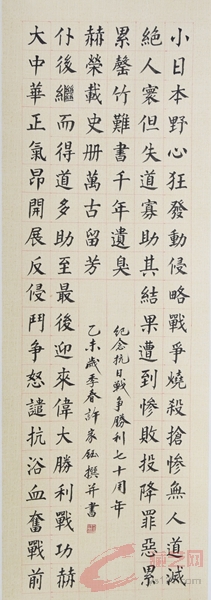 小日本野心狂發動侵略戰爭燒殺搶慘無人道滅
絕人寰但失道寡助其結果遭到慘敗投降罪惡累
累罄竹難書千年遺臭
大中華正氣昂開展反侵鬥爭怒譴抗浴血奮戰前
仆後繼而得道多助至最後迎來偉大勝利戰功赫
赫榮載史册萬古留芳
紀念抗日戰争勝利七十周年
乙未歲季春許家鈺撰并書